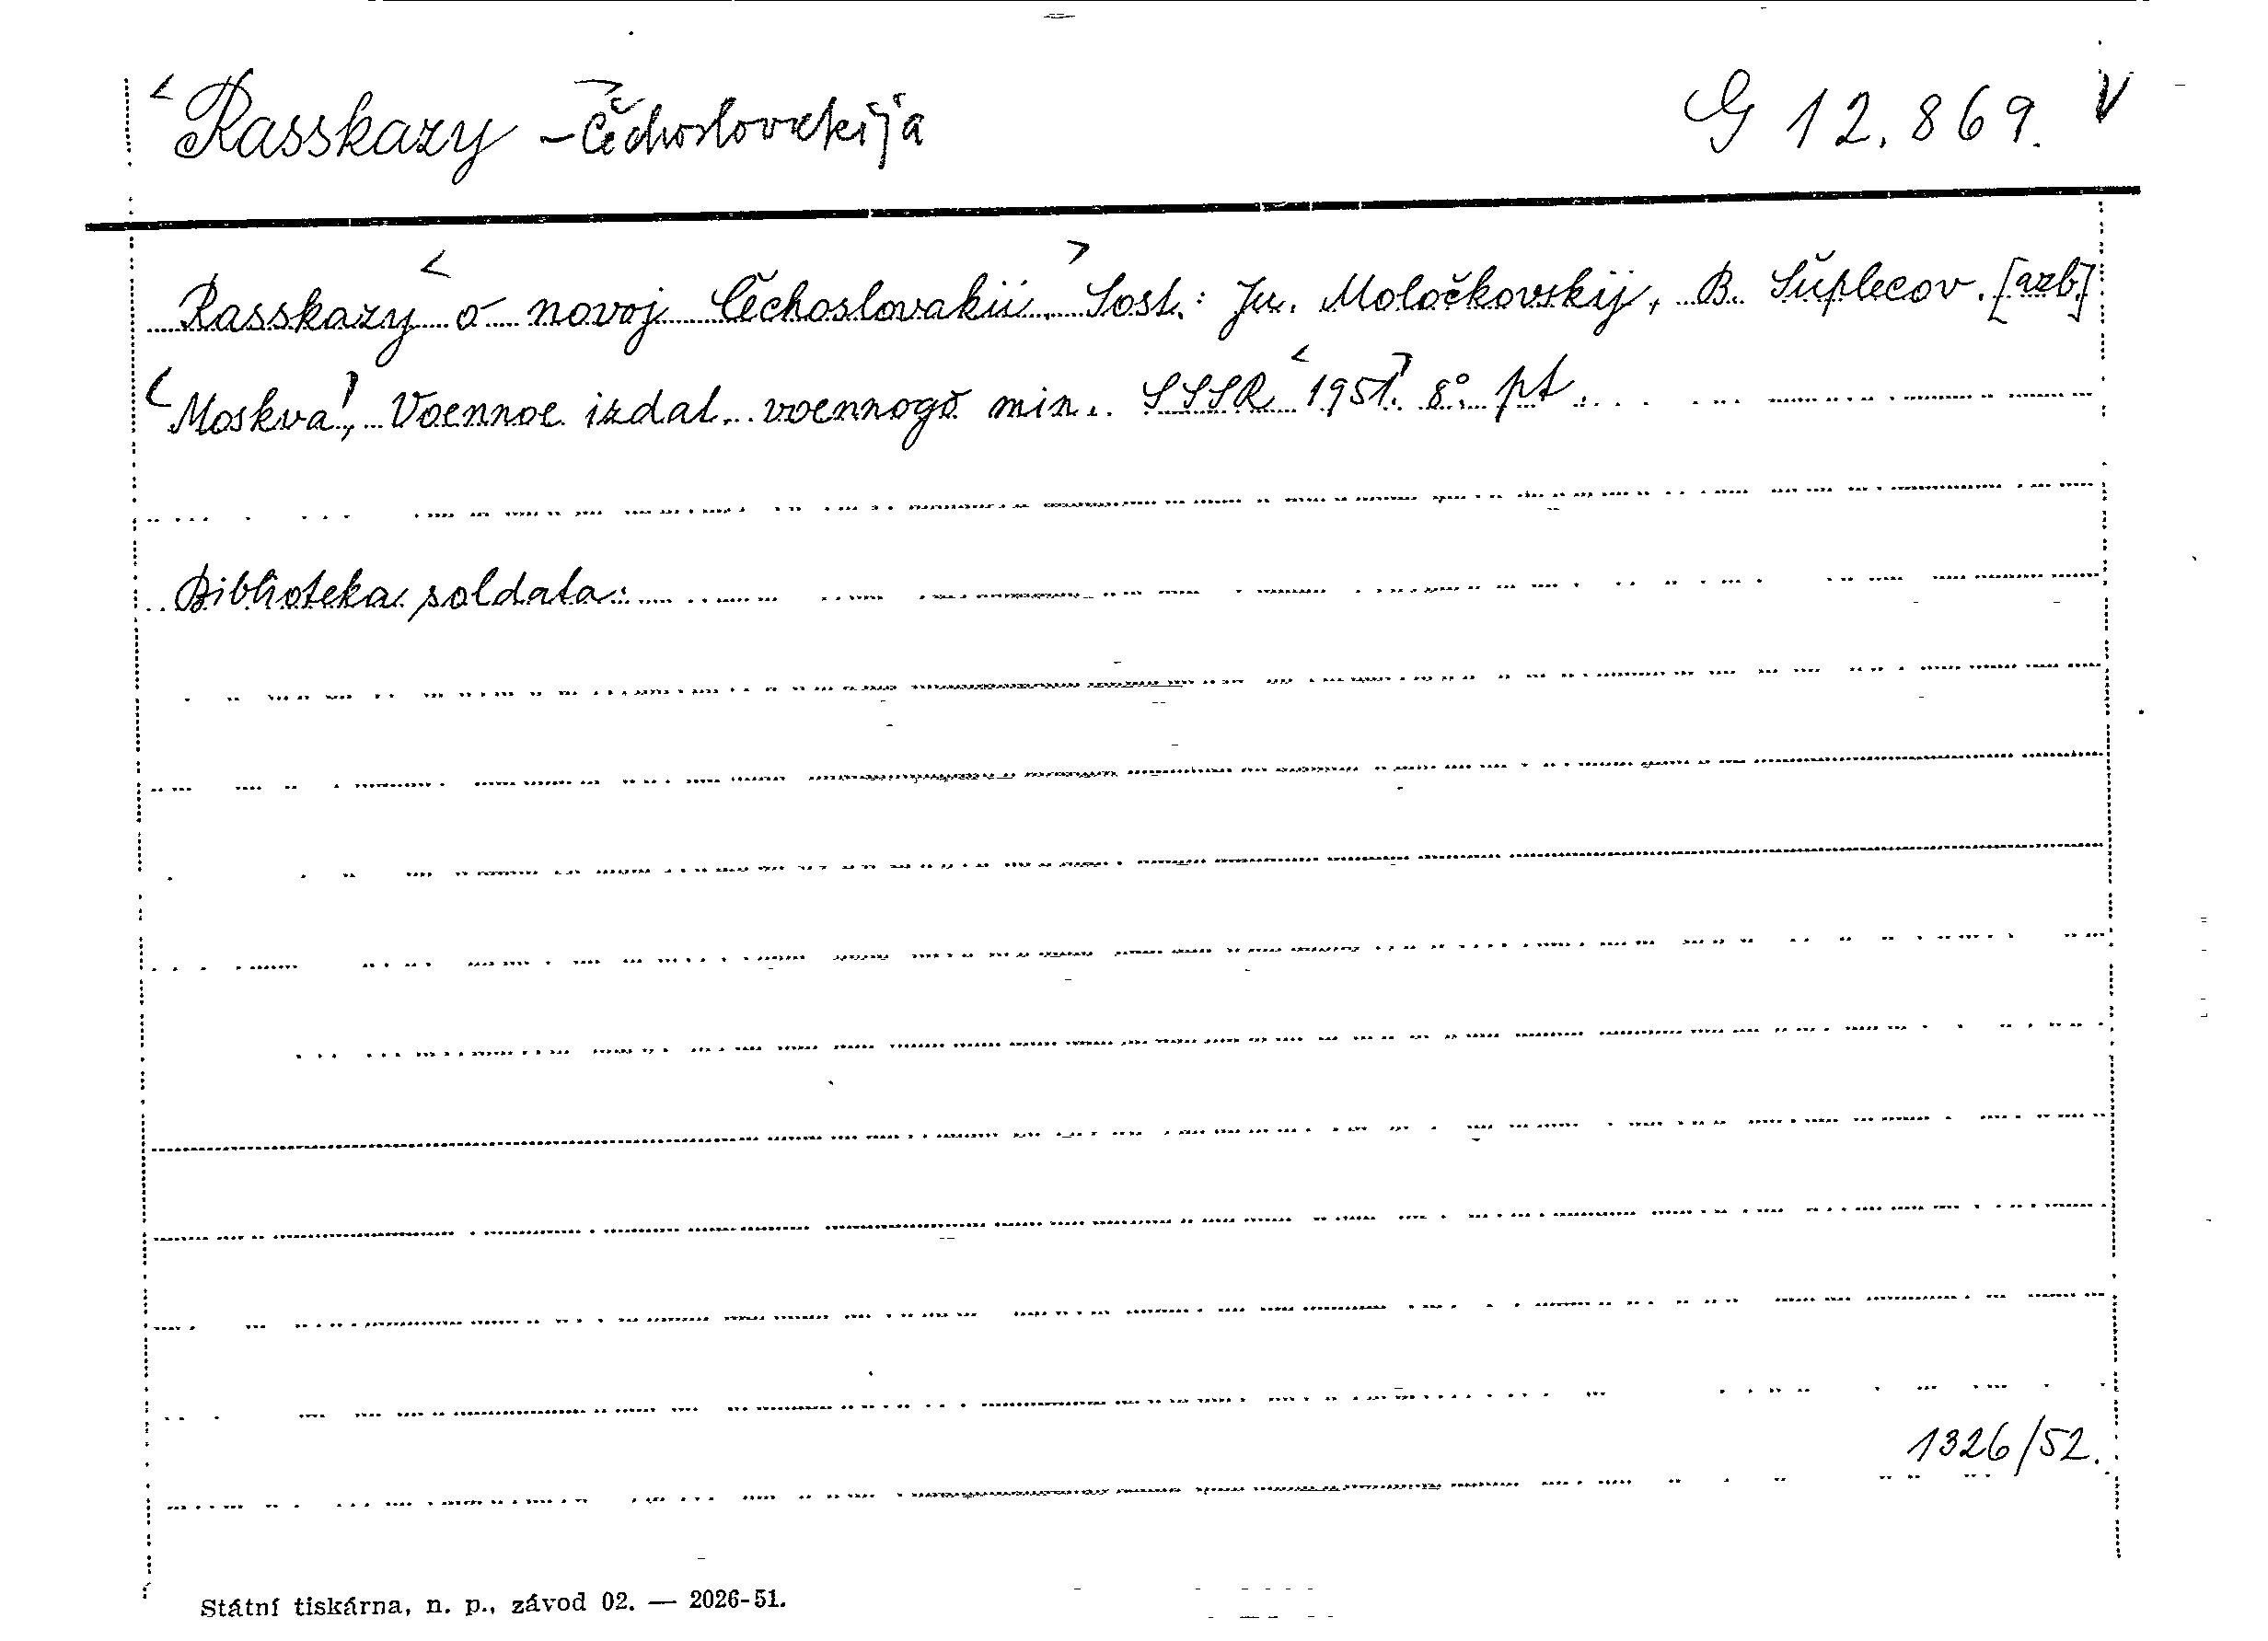 <Rasskazy - Čechoslovakija> G 12.869. V
Rasskazy <o novoj Čechoslovakii.> Sost.: Ju. Moločkovskij, B. Šuplecov. [azb.]
<Moskva>, Voennoe izdat. voennogo min. SSSR <1951>. 8°. pt.
Biblioteka soldata.
1326/52.
Státní tiskárna, n. p., závod 02. — 2026-51.